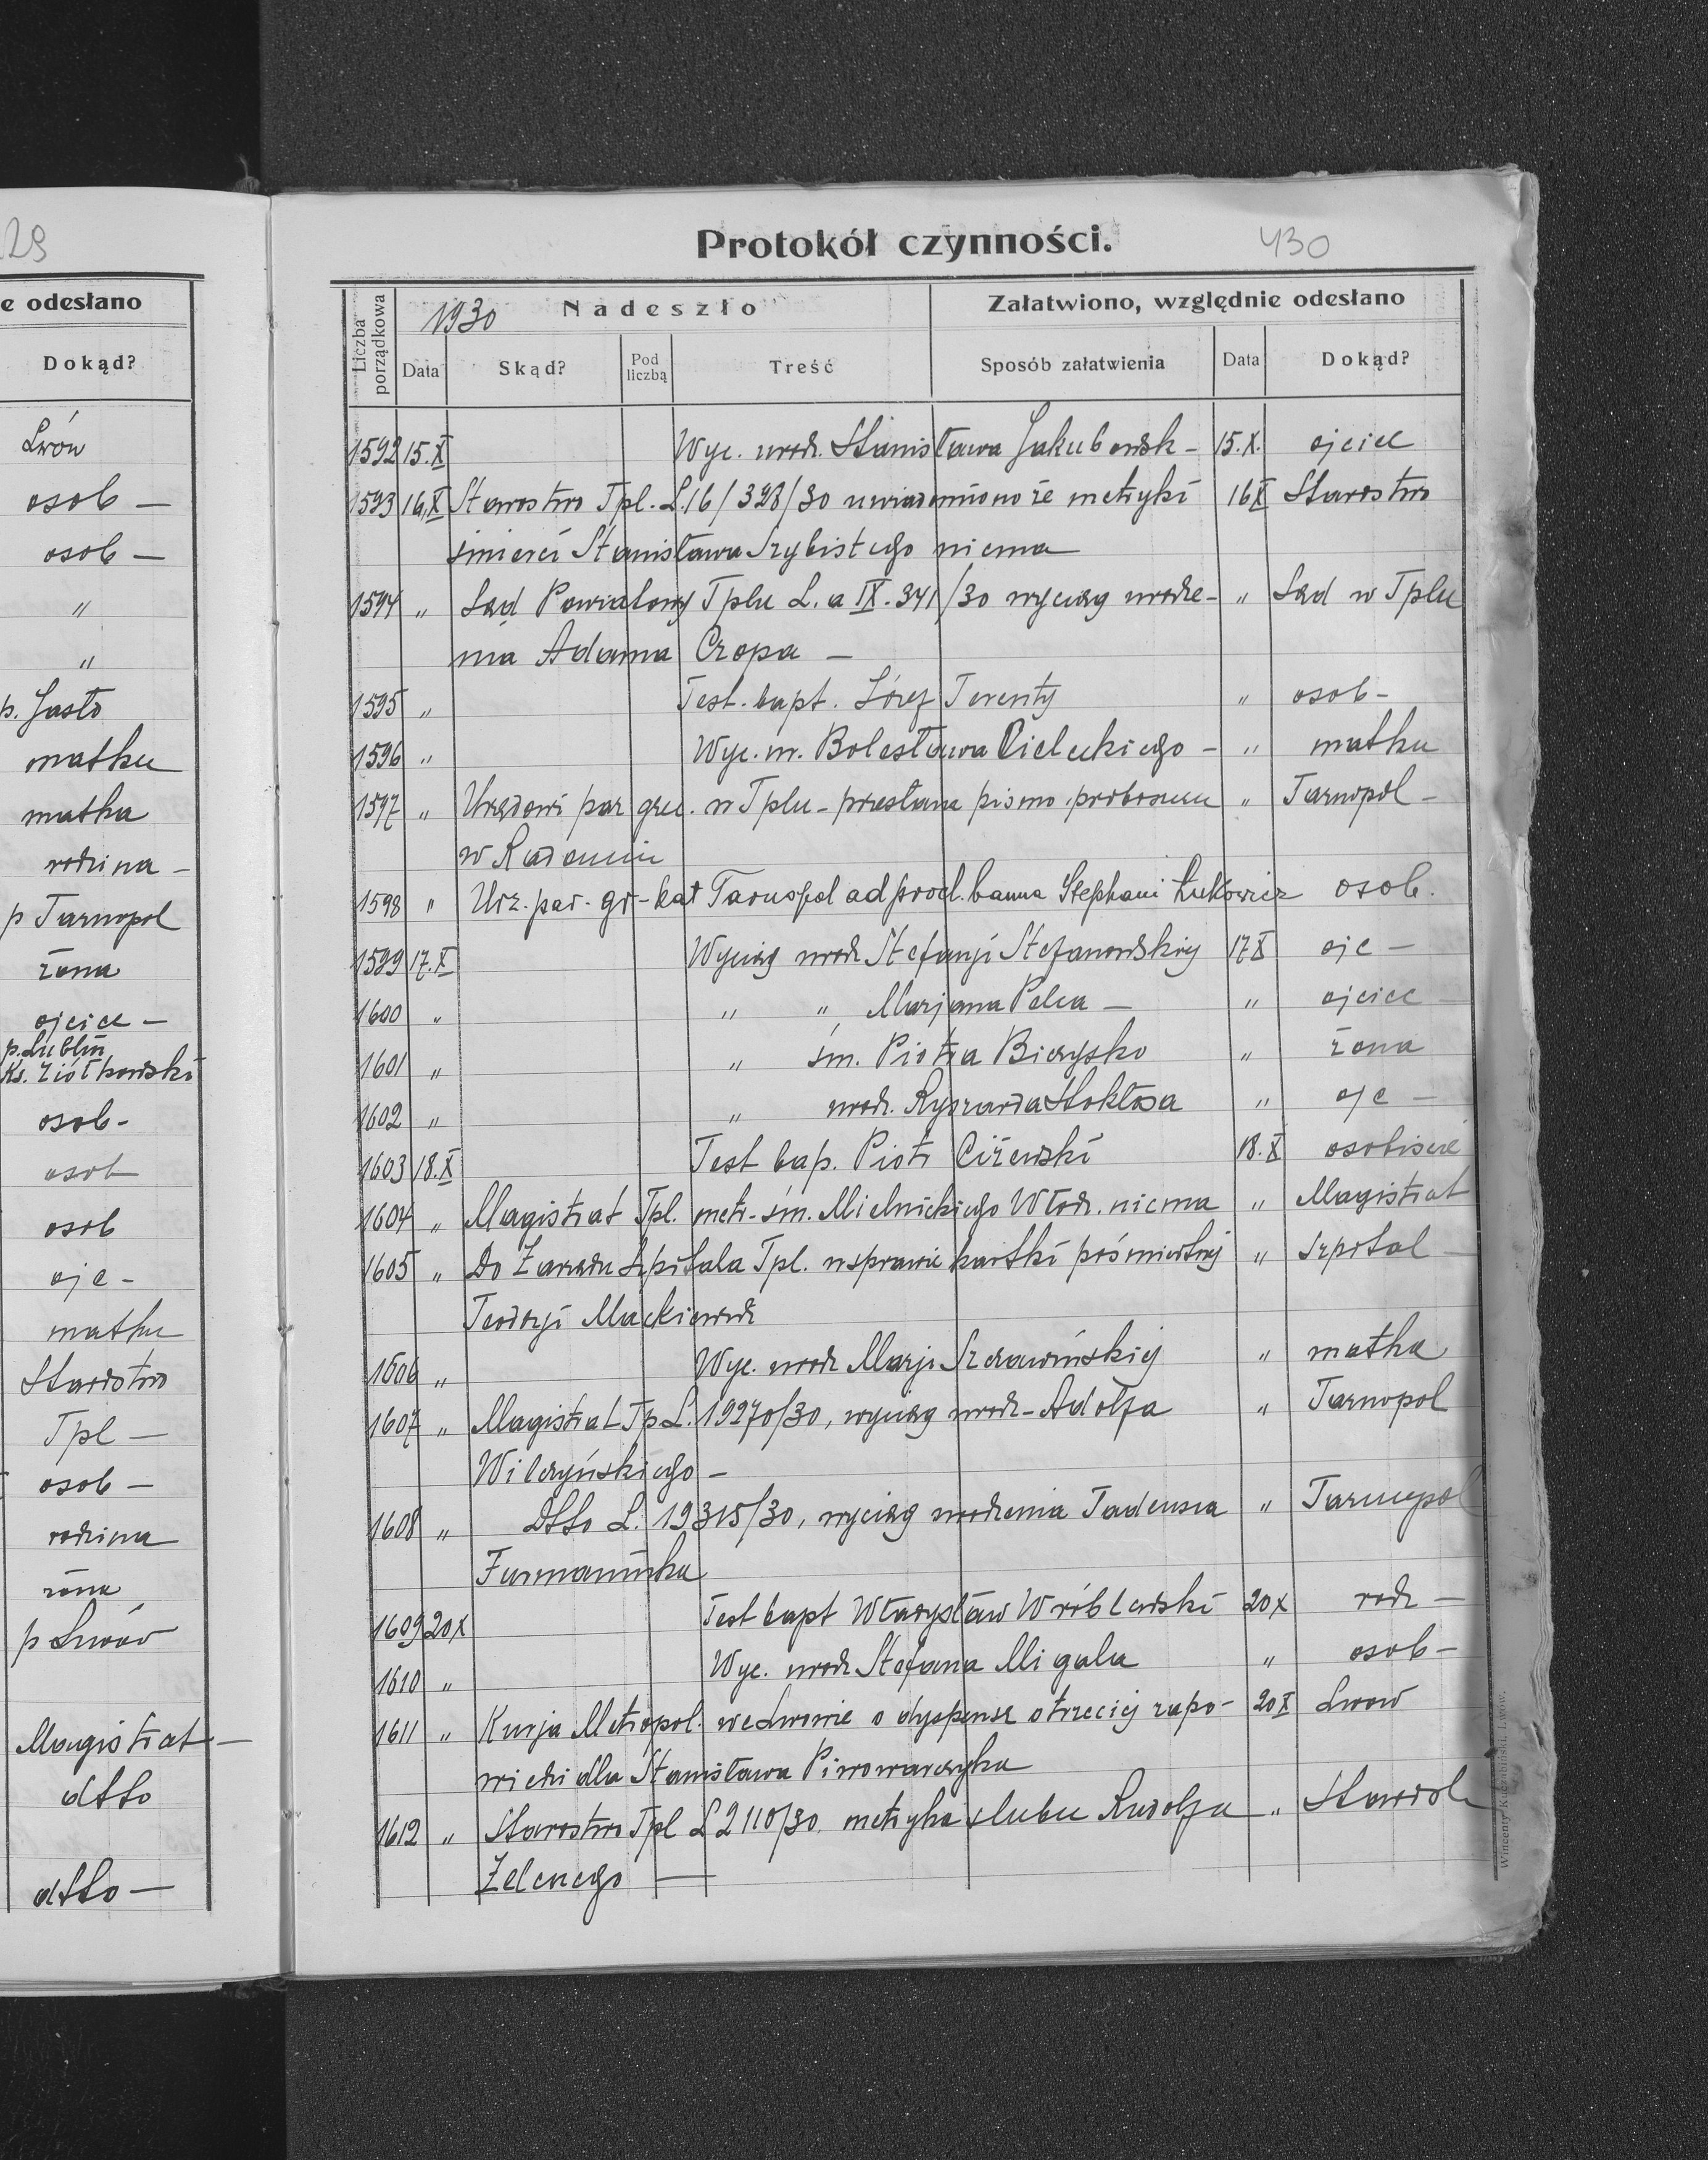 29
e odesłano
Dokąd?
Lwów
osob —
osob —
"
"
p. Jasło
matka
matka
rodzina —
p Tarnopol
żona
ojciec —
p. Lublin
Ks. Ziółkowski
osob -
osob
osob
ojc -
matka
Starostwo
Tpl —
osob —
rodzina
żona
p Lwów
Magistrat —
dtto
dtto —
Protokół czynności. 430
Liczba porządkowa 1930 Nadeszło Załatwiono, względnie odesłano
Data Skąd? Pod liczbą Treść Sposób załatwienia Data Dokąd?
1592 15.X Wyc. urodz. Stanisława Jakubowsk - 15.X. ojciec
1593 16.X Starostwo Tpl. L.16/328/30 uwiadomiono że metryki 16X Starostwo
śmierci Stanisława Szybistego niema
1594 " Sąd Powiatowy Tplu L. a IX. 341/30 wyciąg urodze- " Sąd w Tplu
nia Adama Czopa —
1595 " Test. bapt. Józef Terenty " osob -
1596 " Wyc. m. Bolesława Cieleckiego - " matka
1597 " Urzędowi par grec. w Tplu - przesłano pismo proboszcza " Tarnopol -
w
1598 " Urz. par. gr-kat Tarnopol ad procl. banna Stephani Łukowicz osob.
1599 17.X Wyciąg urodz Stefanji Stefanowskiej 17X ojc —
1600 " " " Marjana Pelca — " ojciec —
1601 " " śm. Piotra Bierysko " żona
1602 " " urodz. Ryszarda Stokłosa " ojc —
1603 18.X Test bap. Piotr Ciżewski 18.X osobiście
1604 " Magistrat Tpl. metr. śm. Mielnickiego Włodz. niema " Magistrat
1605 " Do Zarządu Szpitala Tpl. w sprawie kartki pośmiertnej " Szpital —
Teodozji Mackiewicz
1606 " Wyc. urodz Marji Szczawińskiej " matka
1607 " Magistrat Tp L. 19270/30, wyciąg urodz - Adolfa " Tarnopol
Wilczyńskiego —
1608 " Dtto L. 19315/30, wyciąg urodzenia Tadeusza " Tarnopol
Furmaniuka
1609 20X Test bapt Władysław Wróblewski 20X rodz —
1610 " Wyc. urodz Stefana Migala " osob —
1611 " Kurja Metropol. we Lwowie o dyspensę o trzeciej zapo- 20X Lwów
wiedzi dla Stanisława Piwowarczyka
1612 " Starostwo Tpl L 2110/30. metryka ślubu Rudolfa " Starost
Zelenego —
Wincenty Kuczabiński, Lwów.